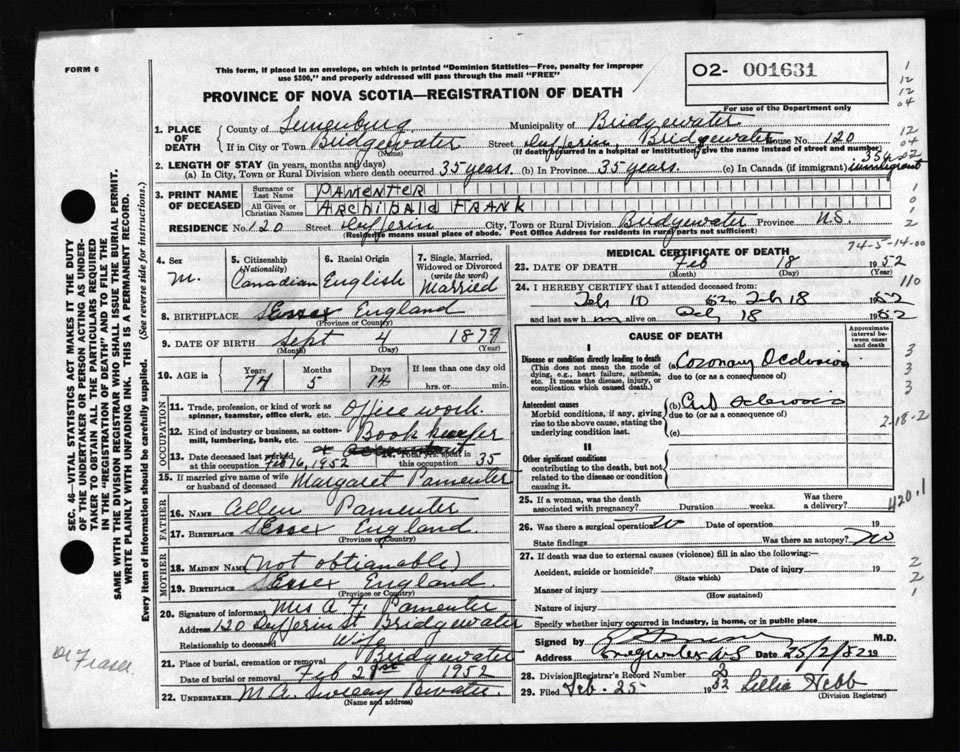 FORM 6
This form, if placed in an envelope, on which is printed "Dominion Statistics—Free, penalty for improper
use $300," and properly addressed will pass through the mail "FREE"
O2- 001631
For use of the Department only
PROVINCE OF NOVA SCOTIA—REGISTRATION OF DEATH
1. PLACE OF DEATH
County of Lunenburg Municipality of Bridgewater
If in City or Town Bridgewater (Name) Street Dufferin Bridgewater House No. 120
(If death occurred in a hospital or institution, give the name instead of street and number)
2. LENGTH OF STAY (in years, months and days)
(a) In City, Town or Rural Division where death occurred 35 years. (b) In Province 35 years. (c) In Canada (if immigrant) immigrant
3. PRINT NAME OF DECEASED
Surname or Last Name PAMENTER
All Given or Christian Names ARCHIBALD FRANK
RESIDENCE No. 120 Street Dufferin City, Town or Rural Division Bridgewater Province N.S.
(Residence means usual place of abode. Post Office Address for residents in rural parts not sufficient)
4. Sex M.
5. Citizenship (Nationality) Canadian
6. Racial Origin English
7. Single, Married, Widowed or Divorced (write the word) Married
8. BIRTHPLACE Essex England
(Province or Country)
9. DATE OF BIRTH Sept 4 1877
(Month) (Day) (Year)
10. AGE in Years 74 Months 5 Days 14 If less than one day old
hrs. or min.
OCCUPATION
11. Trade, profession, or kind of work as spinner, teamster, office clerk, etc. Office work.
12. Kind of industry or business, as cotton-mill, lumbering, bank, etc. Book keeper
13. Date deceased last worked at this occupation Feb 16, 1952 spent in this occupation 35
15. If married give name of wife or husband of deceased Margaret Pamenter
FATHER
16. NAME Allen Pamenter
17. BIRTHPLACE Essex England
(Province or Country)
MOTHER
18. MAIDEN NAME (not obtianable)
19. BIRTHPLACE Essex England.
(Province or Country)
20. Signature of informant Mrs A. F. Pamenter
Address 120 Dufferin St Bridgewater
Relationship to deceased Wife
21. Place of burial, cremation or removal Bridgewater
Date of burial or removal Feb 21st 1952
22. UNDERTAKER M. A. Sweeny Bwater.
(Name and address)
MEDICAL CERTIFICATE OF DEATH
74-5-14-00
23. DATE OF DEATH Feb 18 1952
(Month) (Day) (Year)
24. I HEREBY CERTIFY that I attended deceased from:
Feb 10 52 to Feb 18 1952
and last saw h m alive on Feb 18 1952
110
CAUSE OF DEATH
Approximate interval between onset and death
I
Disease or condition directly leading to death
(This does not mean the mode of dying, e.g., heart failure, asthenia, etc. It means the disease, injury, or complication which caused death.)
(a) Coronary Occlusion
due to (or as a consequence of)
Antecedent causes
Morbid conditions, if any, giving rise to the above cause, stating the underlying condition last.
(b)
due to (or as a consequence of)
(c)
2-18-2
II
Other significant conditions
contributing to the death, but not related to the disease or condition causing it.
25. If a woman, was the death associated with pregnancy? Duration weeks. Was there a delivery?
420.1
26. Was there a surgical operation? No Date of operation 19
State findings Was there an autopsy? No
27. If death was due to external causes (violence) fill in also the following:—
Accident, suicide or homicide? Date of injury 19
(State which)
Manner of injury
(How sustained)
Nature of injury
Specify whether injury occurred in industry, in home, or in public place
Signed by M.D.
Address Bridgewater NS Date 25/2/52 19
28. Division Registrar's Record Number
29. Filed Feb. 25 1952 Lillia Hebb
(Division Registrar)
SEC. 46—VITAL STATISTICS ACT MAKES IT THE DUTY
OF THE UNDERTAKER OR PERSON ACTING AS UNDER-
TAKER TO OBTAIN ALL THE PARTICULARS REQUIRED
IN THE "REGISTRATION OF DEATH" AND TO FILE THE
SAME WITH THE DIVISION REGISTRAR WHO SHALL ISSUE THE BURIAL PERMIT.
WRITE PLAINLY WITH UNFADING INK. THIS IS A PERMANENT RECORD.
Every item of information should be carefully supplied. (See reverse side for instructions.)
Dr Fraser